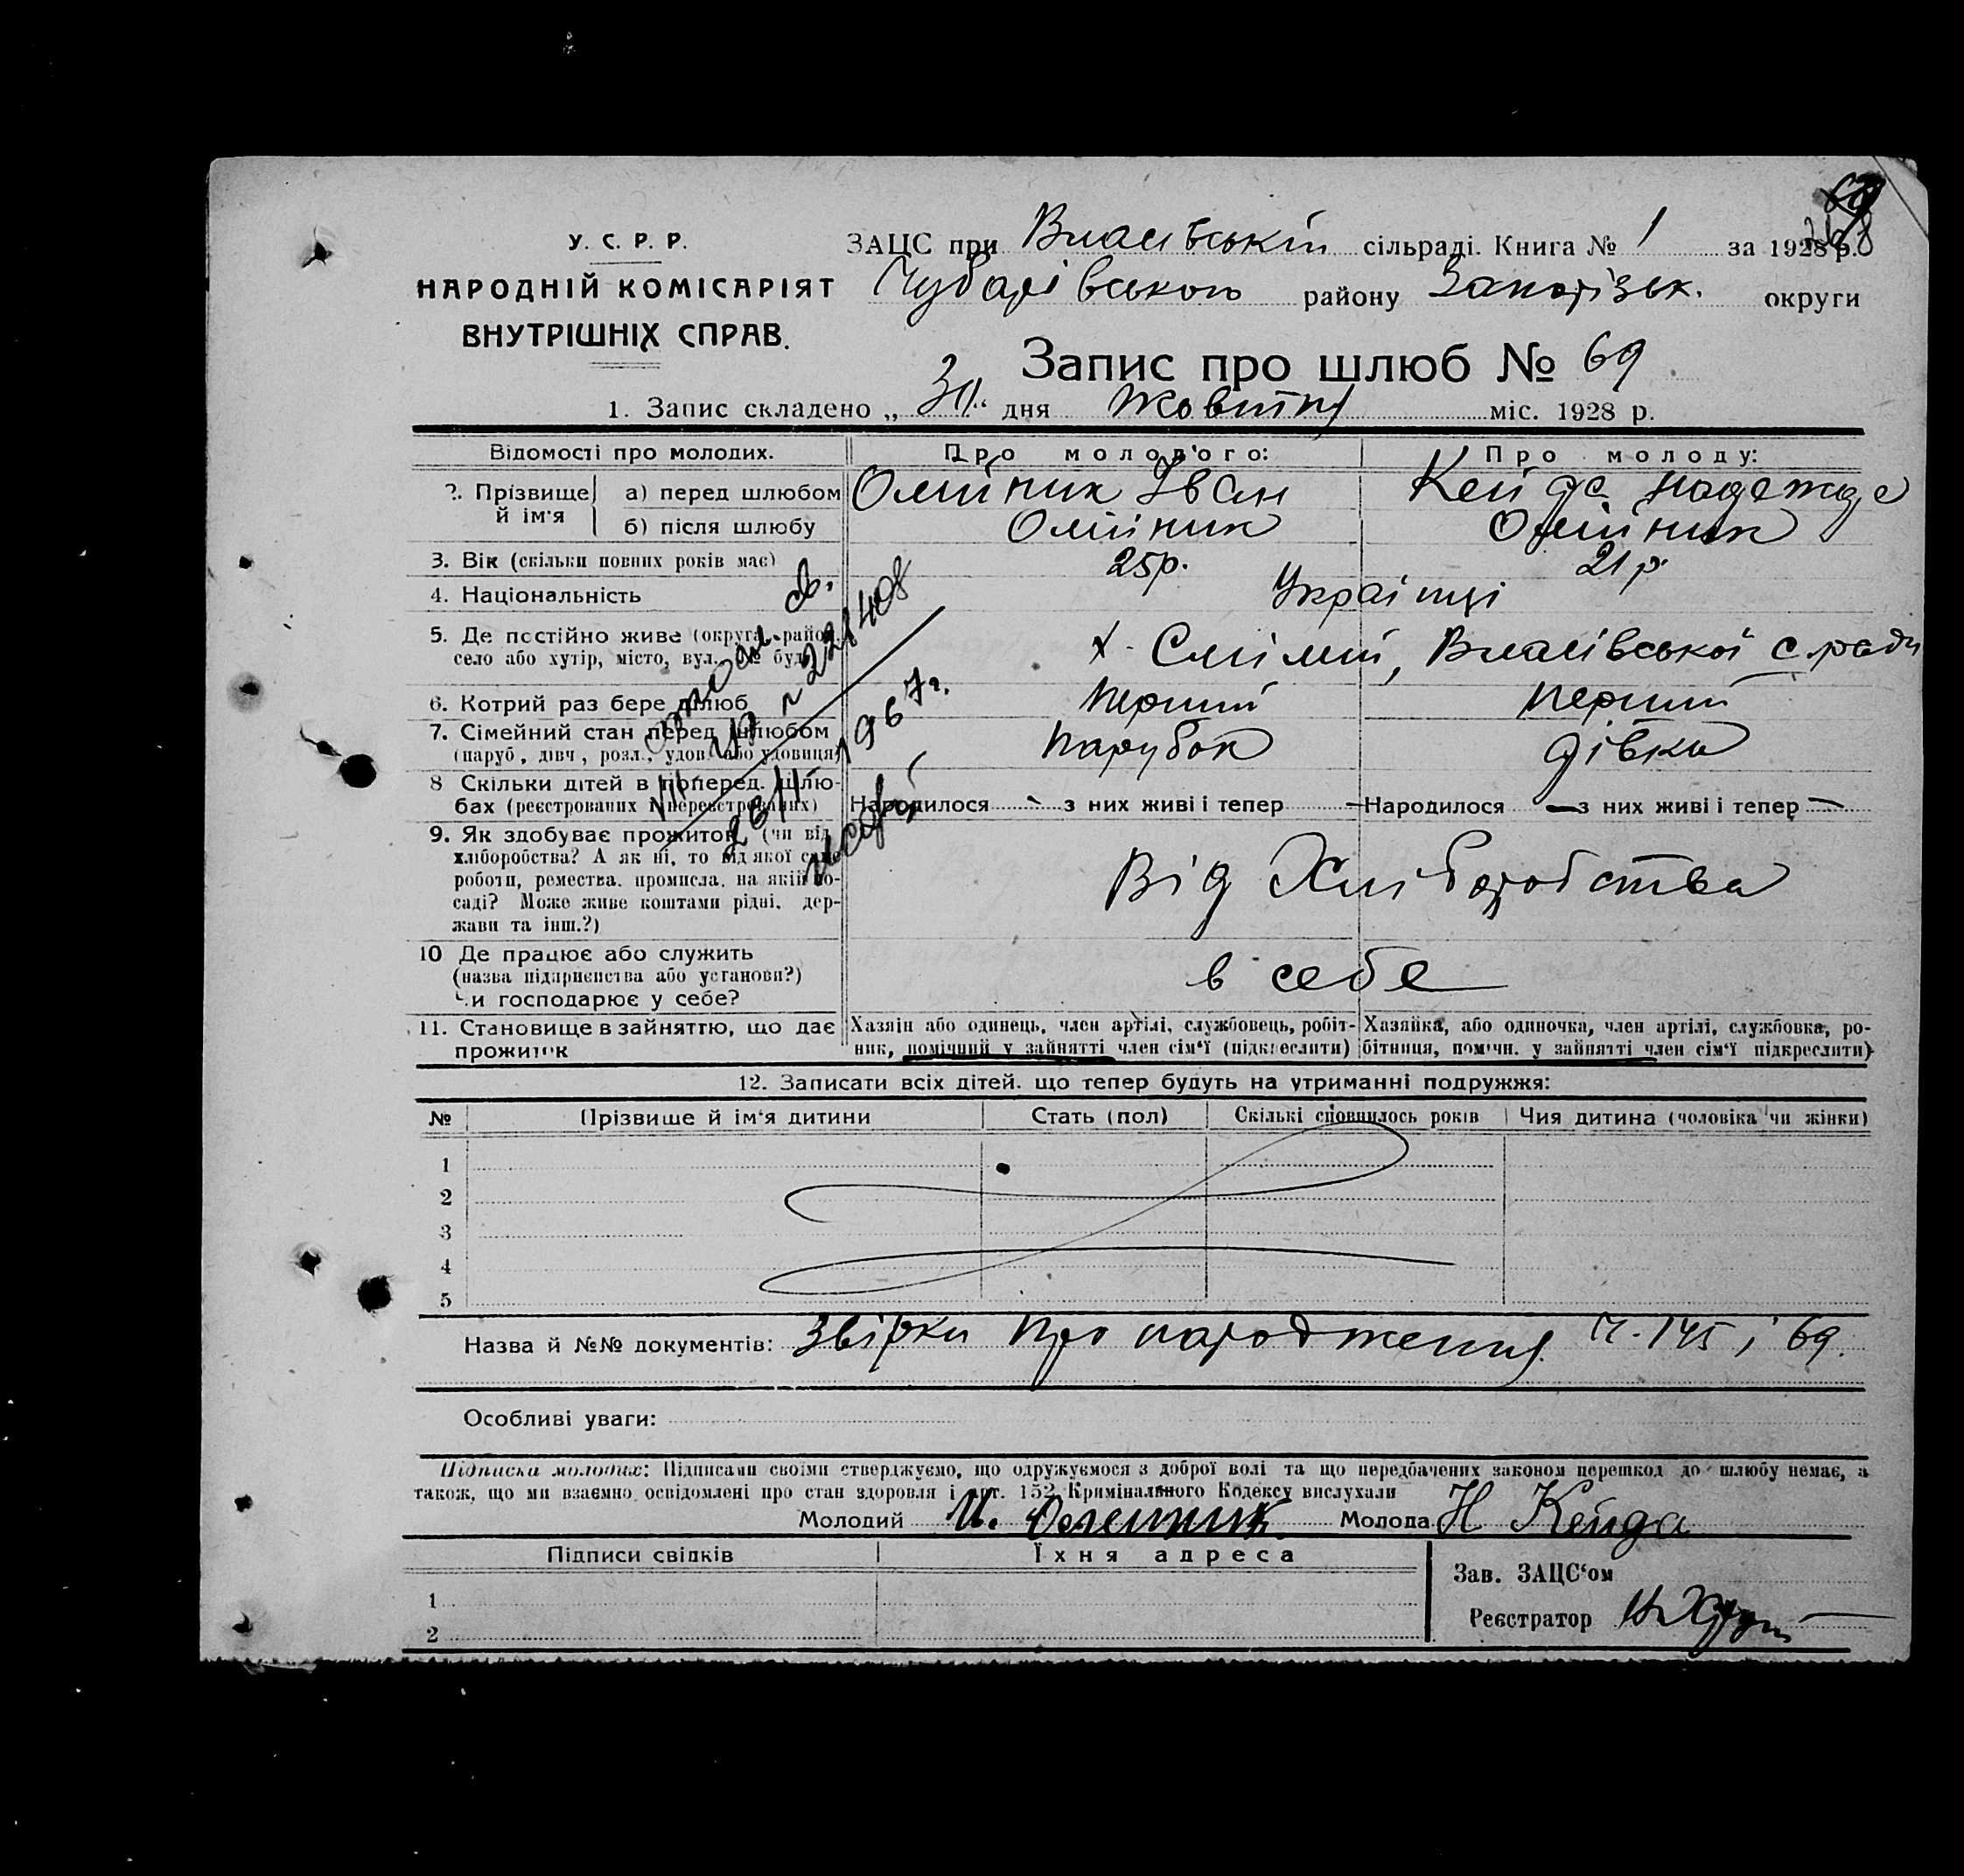 У. С. Р. Р.
НАРОДНІЙ КОМІСАРІЯТ
ВНУТРІШНІХ СПРАВ.
ЗАЦС при Власівській сільраді. Книга № 1 за 1928 р.
Чубарівського району Запорізьк. округи
Запис про шлюб № 69
1. Запис складено „30“ дня Жовтня міс. 1928 р.
Відомості про молодих. Про молодого: Про молоду:
2. Прізвище й ім'я а) перед шлюбом Олійник Іван Кейда Надежда
б) після шлюбу Олійник Олійник
3. Вік (скільки повних років має) 25р. 21р.
4. Національність Українці
5. Де постійно живе (округа, район,
село або хутір, місто, вул., № буд. х. Смілий, Власівської с. ради
6. Котрий раз бере шлюб перший перший
7. Сімейний стан перед шлюбом парубок дівка
(паруб., дівч., розл., удов. або удовиця)
8 Скільки дітей в поперед. шлю-
бах (реєстрованих і нереєстрованих) Народилося - з них живі і тепер — Народилося — з них живі і тепер —
9. Як здобуває прожиток (чи від
хліборобства? А як ні, то від якої саме
роботи, ремества, промисла, на якій по-
саді? Може живе коштами рідні, дер-
жави та інш.?)
Від Хліборобства
10 Де працює або служить
(назва підприємства або установи?)
Чи господарює у себе?
в себе
11. Становище в зайняттю, що дає
прожиток
Хазяін або одинець, член артілі, службовець, робіт-
ник, помічний у зайнятті член сім'ї (підкреслити)
Хазяйка, або одиночка, член артілі, службовка, ро-
бітниця, помічн. у зайнятті член сім'ї підкреслити)
№ 228408
1967 г.
12. Записати всіх дітей, що тепер будуть на утриманні подружжя:
№ Прізвище й ім'я дитини Стать (пол) Скількі сповнилось років Чия дитина (чоловіка чи жінки)
1
2
3
4
5
Назва й №№ документів: Звірки про народження ч. 145 і 69.
Особливі уваги:
Підписка молодих: Підписами своїми стверджуємо, що одружуємося з доброї волі та що передбачених законом перешкод до шлюбу немає, а
також, що ми взаємно освідомлені про стан здоровля і арт. 152 Кримінального Кодексу вислухали
Молодий И. Олейник Молода Н Кейда
Підписи свідків Їхня адреса
1
2
Зав. ЗАЦС'ом
Реєстратор